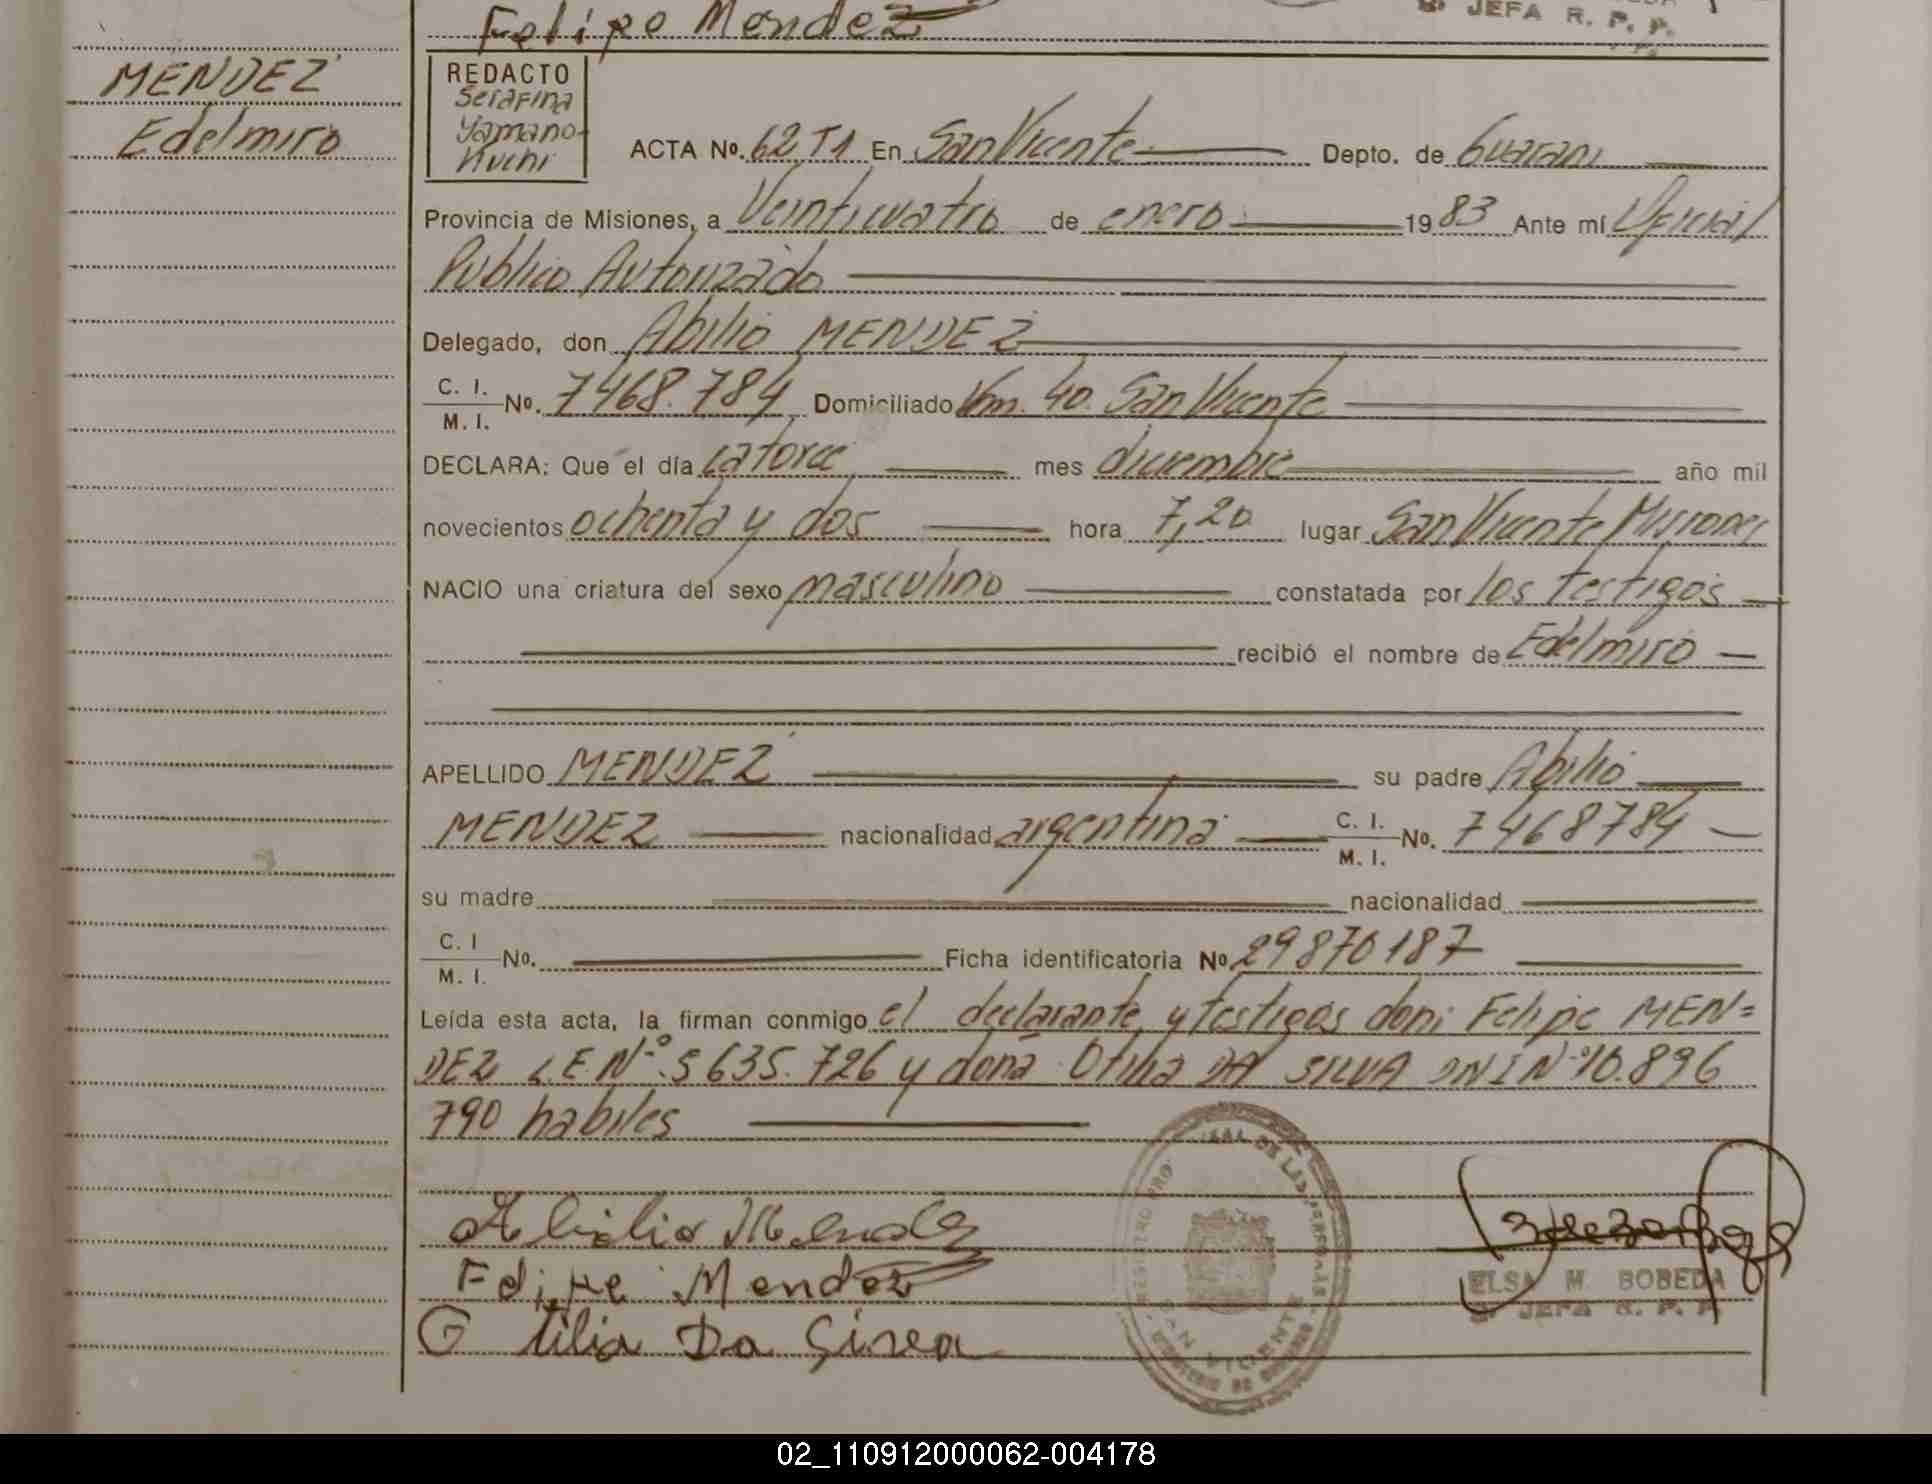 Felipe Mendez
JEFA R. P. P.
MENDEZ
Edelmiro
REDACTO
Serafina
Yamano-
Kuchi
ACTA Nº. 62 T1 En San Vicente Depto. de Guarani
Provincia de Misiones, a Veinticuatro de enero 1983 Ante mí Oficial
Publico Autorizado
Delegado, don Abilio MENDEZ
C. I.
M. I. Nº. 7468.784 Domiciliado Km. 40. San Vicente
DECLARA: Que el día catorce mes diciembre año mil
novecientos ochenta y dos hora 7,20 lugar San Vicente Misiones
NACIO una criatura del sexo masculino constatada por los testigos
recibió el nombre de Edelmiro
APELLIDO MENDEZ su padre Abilio
MENDEZ nacionalidad argentina C. I.
M. I. Nº. 7468784
su madre nacionalidad
C. I
M. I. Nº. Ficha identificatoria Nº 29870187
Leída esta acta, la firman conmigo el declarante y testigos don: Felipe MEN=
DEZ L.E Nº. 5635.726 y doña Otilia DA SILVA DNI Nº 10.896
790 habiles
Abilio Mendez
Felipe Mendez
Otilia Da Silva
SAN VICENTE
ELSA M. BOBEDA
JEFA R. P. P
02_110912000062-004178